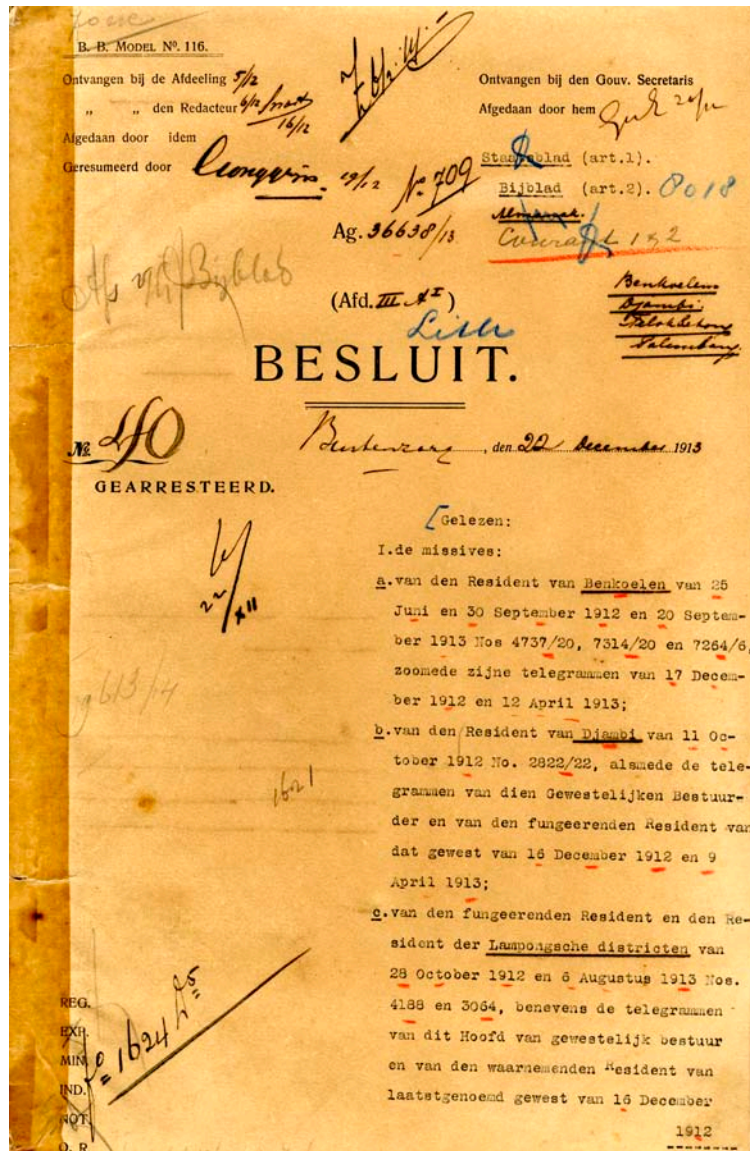 B. B. MODEL Nº. 116.
Ontvangen bij de Afdeeling 5/12
„ „ den Redacteur 6/12
16/12
Afgedaan door idem
Geresumeerd door 19/12
Nº 709
Ontvangen bij den Gouv. Secretaris
Afgedaan door hem
Staatsblad (art.1).
Bijblad (art.2). 8018
Almanak.
Courant 1 & 2
Ag. 36638/13
Bijblad
(Afd. III A I)
Benkoelen
Djambi
Telokbetong
Palembang
BESLUIT.
No. 40
Buitenzorg, den 22 December 1913
GEARRESTEERD.
22/XII
1621
Gelezen:
I.de missives:
a.van den Resident van Benkoelen van 25
Juni en 30 September 1912 en 20 Septem-
ber 1913 Nos 4737/20, 7314/20 en 7264/6,
zoomede zijne telegrammen van 17 Decem-
ber 1912 en 12 April 1913;
b.van den Resident van Djambi van 11 Oc-
tober 1912 No. 2822/22, alsmede de tele-
grammen van dien Gewestelijken Bestuur-
der en van den fungeerenden Resident van
dat gewest van 16 December 1912 en 9
April 1913;
c.van den fungeerenden Resident en den Re-
sident der Lampongsche districten van
28 October 1912 en 6 Augustus 1913 Nos.
4188 en 3064, benevens de telegrammen
van dit Hoofd van gewestelijk bestuur
en van den waarnemenden Resident van
laatstgenoemd gewest van 16 December
1912
REG.
EXP.
MIN.
IND.
NOT.
O. R.
1624